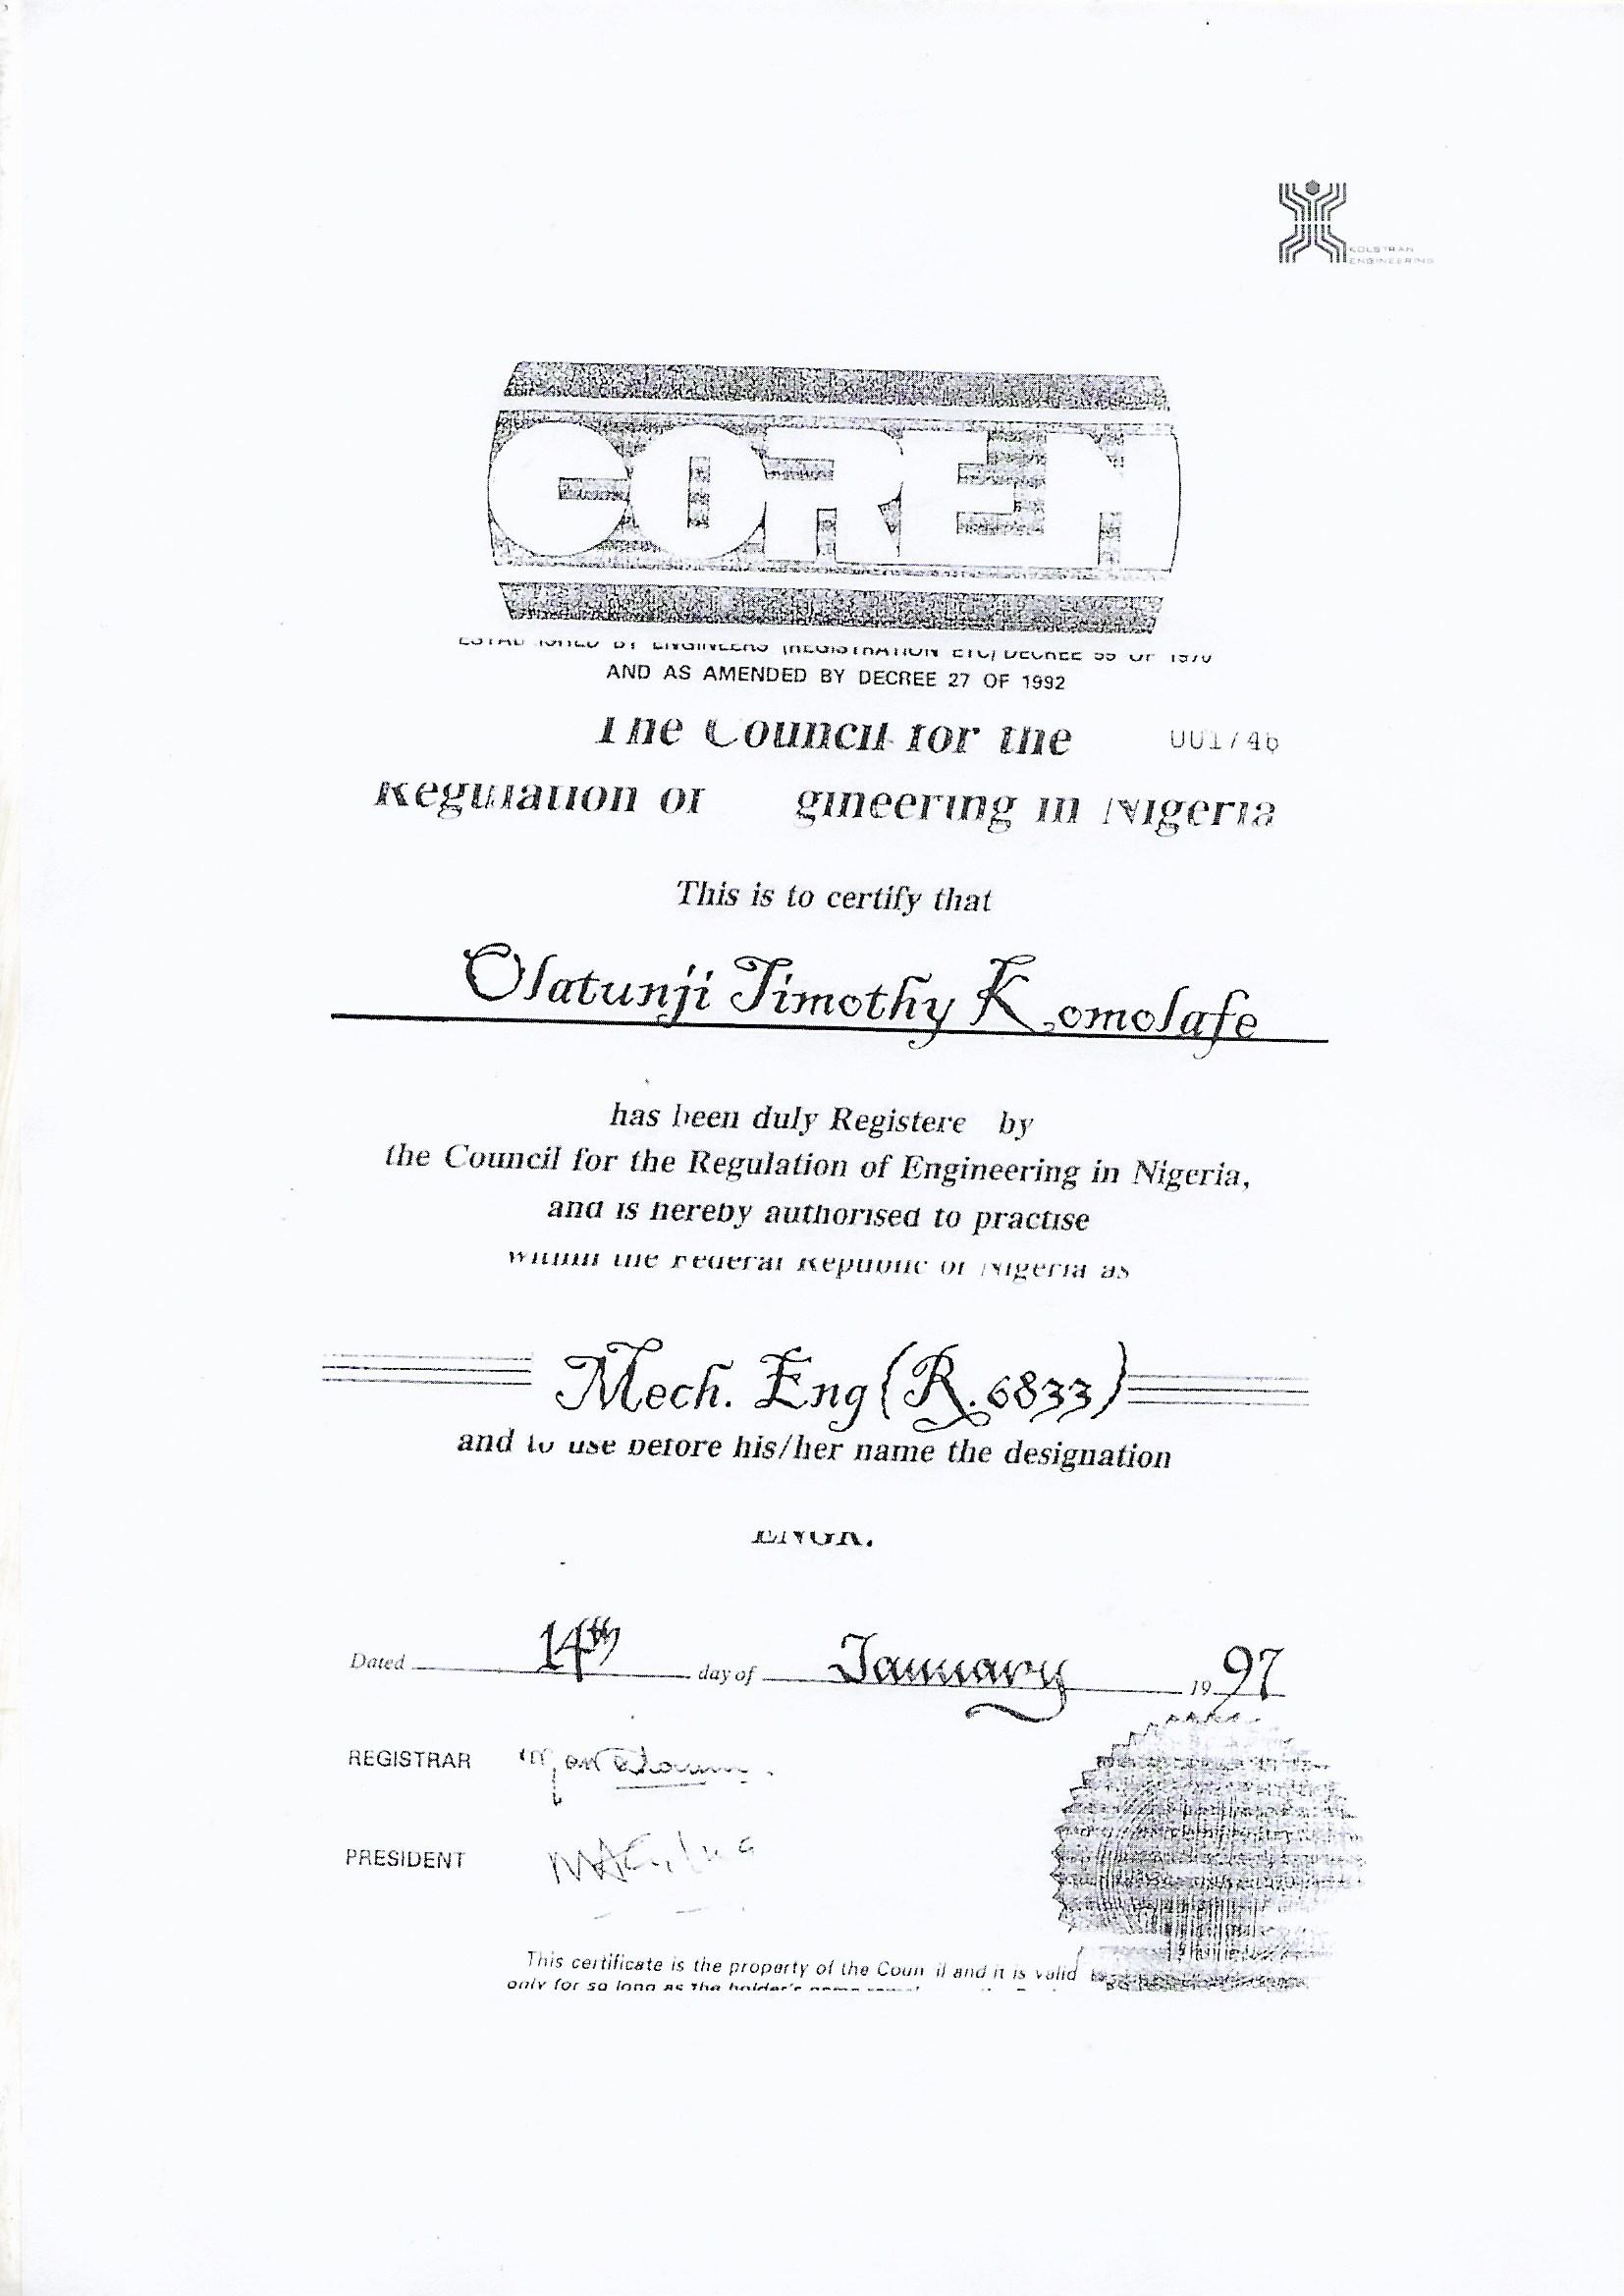 KOLSTRAN
ENGINEERING
COREN
ESTABLISHED BY ENGINEERS (REGISTRATION ETC) DECREE 55 OF 1970
AND AS AMENDED BY DECREE 27 OF 1992
The Council for the
001746
Regulation of gineering in Nigeria
This is to certify that
Olatunji Timothy Komolafe
has been duly Registere by
the Council for the Regulation of Engineering in Nigeria,
and is hereby authorised to practise
within the Federal Republic of Nigeria as
Mech. Eng (R.6833)
and to use before his/her name the designation
ENGR.
Dated 14th day of January 1997
REGISTRAR
PRESIDENT
This certificate is the property of the Coun il and it is valid
only for so long as the holder's name